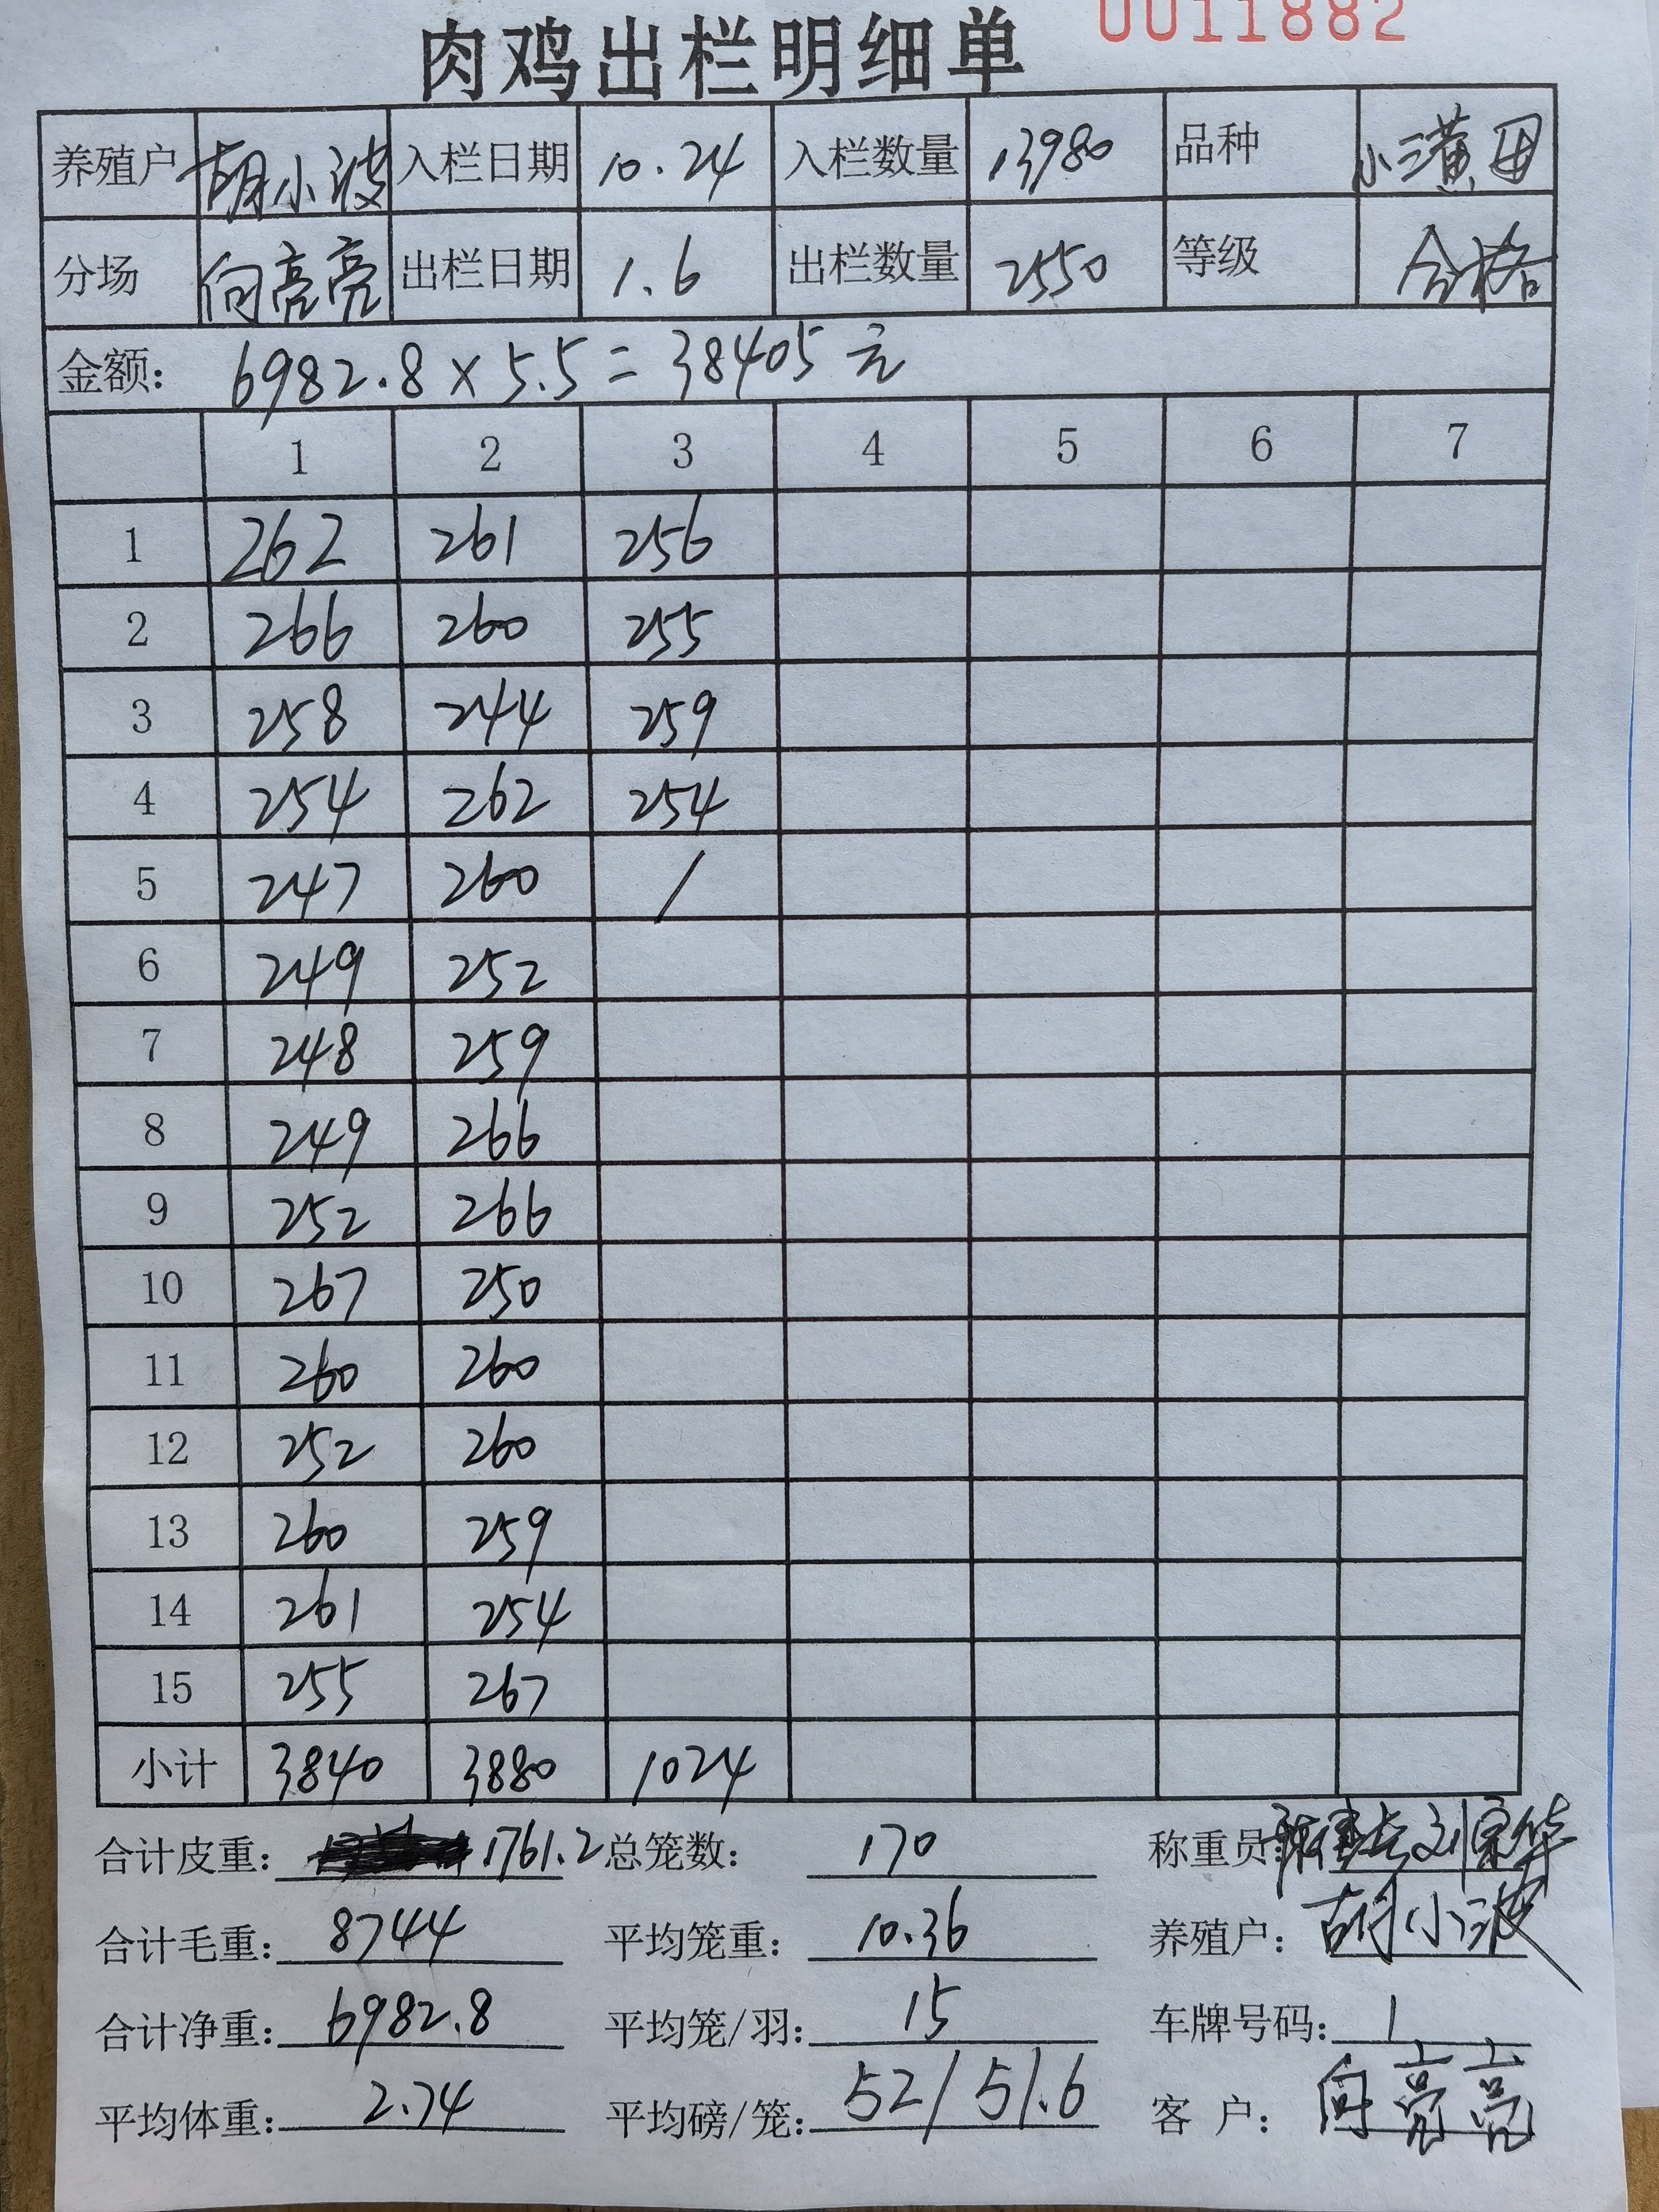 肉鸡出栏明细单 0011882
养殖户 胡小波 入栏日期 10.24 入栏数量 13980 品种 小三黄母
分场 向亮亮 出栏日期 1.6 出栏数量 2550 等级 合格
金额: 6982.8×5.5=38405元
1 2 3 4 5 6 7
1 262 261 256
2 266 260 255
3 258 244 259
4 254 262 254
5 247 260 /
6 249 252
7 248 259
8 249 266
9 252 266
10 267 250
11 260 260
12 252 260
13 260 259
14 261 254
15 255 267
小计 3840 3880 1024
合计皮重: 1761.2 总笼数: 170 称重员: 刘家华
合计毛重: 8744 平均笼重: 10.36 养殖户: 胡小波
合计净重: 6982.8 平均笼/羽: 15 车牌号码: 1
平均体重: 2.74 平均磅/笼: 52/51.6 客户: 向亮亮